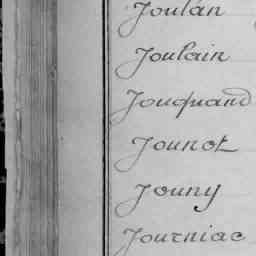 Joulan
Joulain
Jouquand
Jounot
Jouny
Journiac